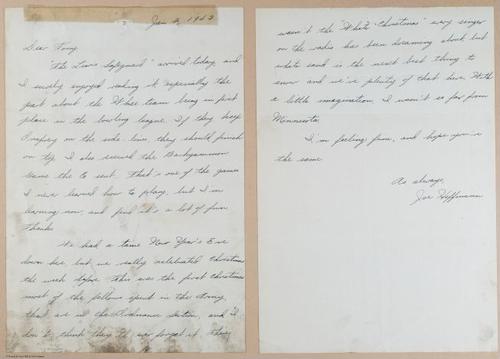 Jan 2, 1943
Dear Tony,
"The Lions Safeguard" arrived today, and
I surely enjoyed reading it especially the
part about the Wher team being in first
place in the bowling league. If they keep
on the side line, they should finish
on top. I also received the Backgammon
Game the Co sent. That's one of the games
I never learned how to play, but I'm
learning now, and find it's a lot of fun.
Thanks.
We had a tame New Year's Eve
down here, but we really celebrated Christmas
the week before. This was the first Christmas
most of the fellows spent in the Army,
that are in the Ordnance Section, and I
don't think they'll ever forget it. They
wasn't the "White Christmas" every singer
on the radio has been dreaming about but
white sand is the next best thing to
snow and we've plenty of that here. With
a little imagination I wasn't so far from
Minnesota.
I'm feeling fine, and hope you're
the same
As always,
Joe Hoffmann